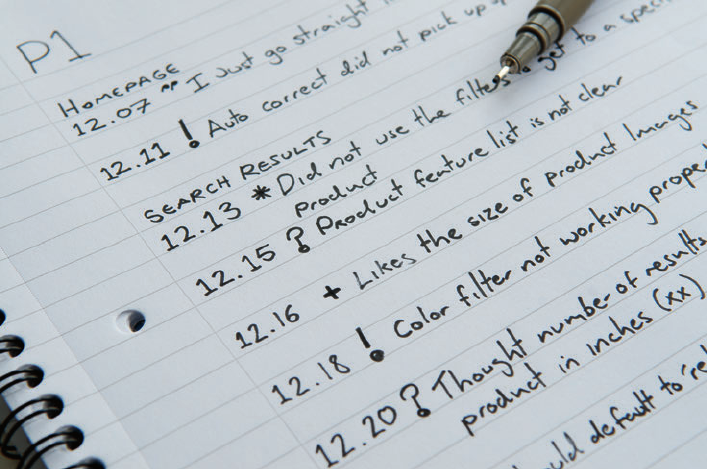 P1
HOMEPAGE
12.07 " I Just go straight
12.11 ! Auto correct did not pick up
SEARCH RESULTS
12.13 * Did not use the filters to get to a specific
product
12.15 ? Product feature list is not clear
12.16 + Likes the size of product Images
12.18 ! Color filter not working
12.20 ? Thought number of results
product in inches (xx)
default to